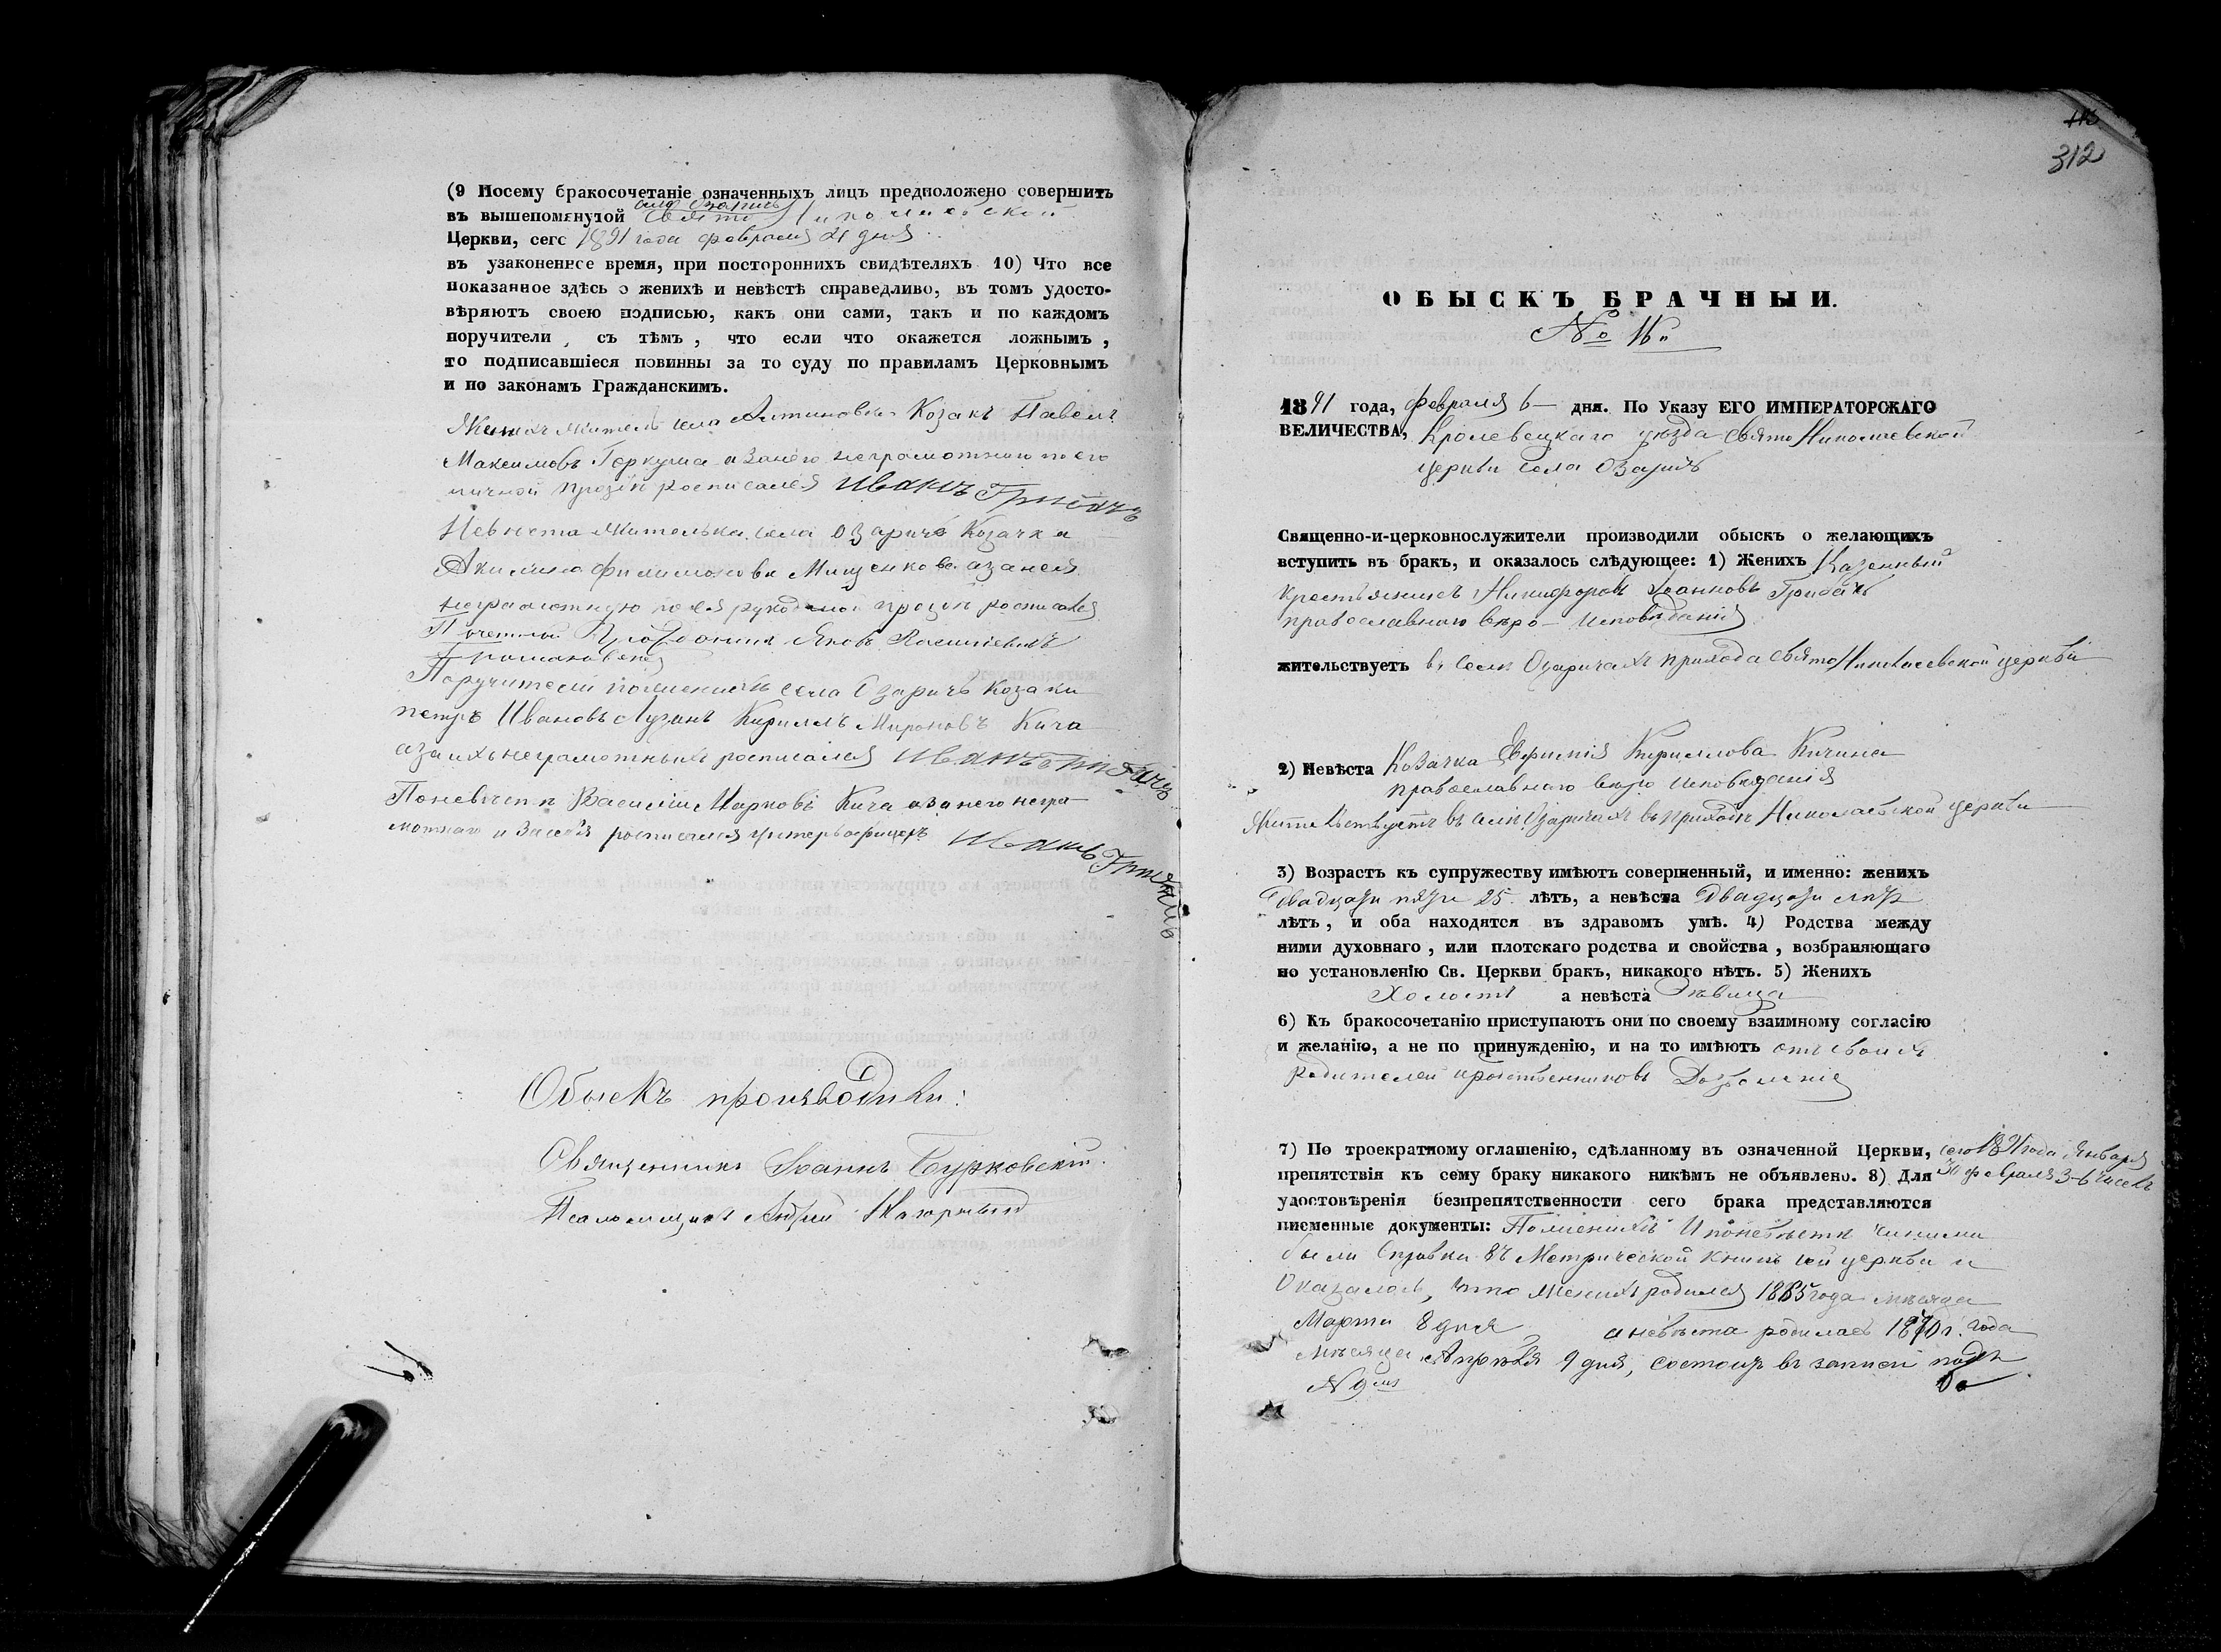 (9 Посему бракосочетаніе означенныхъ лицъ предположено совершить
въ вышепомянутой села Озаричъ Свято Николаевской
Церкви, сего 1891 года февраля 21 дня
въ узаконенное время, при постороннихъ свидѣтеляхъ 10) Что все
показанное здѣсь о женихѣ и невѣстѣ справедливо, въ томъ удосто-
вѣряютъ своею подписью, какъ они сами, такъ и по каждомъ
поручители, съ тѣмъ, что если что окажется ложнымъ,
то подписавшіеся повинны за то суду по правиламъ Церковнымъ
и по законамъ Гражданскимъ.
Женихъ житель села Алтиновки Козакъ Павелъ
Максимовъ Горкуша а занего неграмотнаго по его
личной прозбѣ росписался Иванъ
Невѣста жителька села Озаричъ Козачка
Акилина Филимонова Мищенкова азанея
неграмотную по ея прозбѣ росписался
Почетный Яковъ Василіевичъ
Поручители поженихѣ села Озаричъ Козаки
петръ Ивановъ Лузанъ Кириллъ Мироновъ Кича
азаихънеграмотныхъ росписался Иванъ
Поневѣстѣ Василій Марковъ Кича азанего негра-
мотнаго и засебя росписался унтеръофицеръ Иванъ
Обыскъ производили:
Священникъ Іоаннъ Бурковскій.
Псаломщикъ Андрей Нагорный
312
ОБЫСКЪ БРАЧНЫЙ.
№ 16
1891 года, февраля 6 – дня. По Указу ЕГО ИМПЕРАТОРСКАГО
ВЕЛИЧЕСТВА, Кролевецкаго уѣзда Свято Николаевской
церкви села Озаричъ
Священно-и-церковнослужители производили обыскъ о желающихъ
вступить въ бракъ, и оказалось слѣдующее: 1) Женихъ Казенный
крестьянинъ Никифоровъ Іоанновъ
православнаго вѣро – исповѣданія
жительствуетъ въ селѣ Озаричахъ прихода Свято Николаевской церкви
2) Невѣста Козачка Евфимія Кириллова Кичина
православнаго вѣро исповѣданія
Жительствуетъ въ селѣ Озаричахъ въ приходѣ Николаевской церкви
3) Возрастъ къ супружеству имѣютъ совершенный, и именно: женихъ
Двадцати пяти 25 лѣтъ, а невѣста Двадцати лѣтъ
лѣтъ, и оба находятся въ здравомъ умѣ. 4) Родства между
ними духовнаго, или плотскаго родства и свойства, возбраняющаго
по установленію Св. Церкви бракъ, никакого нѣтъ. 5) Женихъ
Холостъ а невѣста Дѣвица
6) Къ бракосочетанію приступаютъ они по своему взаимному согласію
и желанію, а не по принужденію, и на то имѣютъ отъ своихъ
родителей иродственниковъ Дозволеніе
7) По троекратному оглашенію, сдѣланному въ означенной Церкви, сего 1891 года Января
препятствія къ сему браку никакого никѣмъ не объявлено. 8) Для 30 февраля 3–6 чиселъ
удостовѣренія безпрепятственности сего брака представляются
писменные документы: Поженихѣ И поневѣстѣ чиними
были Справки въ Метрической книгѣ сей церкви и
Оказалось, что женихъ родился года мѣсяца
Марта 8 дня а невѣста родилась 1870 г. года
мѣсяца Апрѣля 9 дня, состоитъ въ записи подъ
№ 9